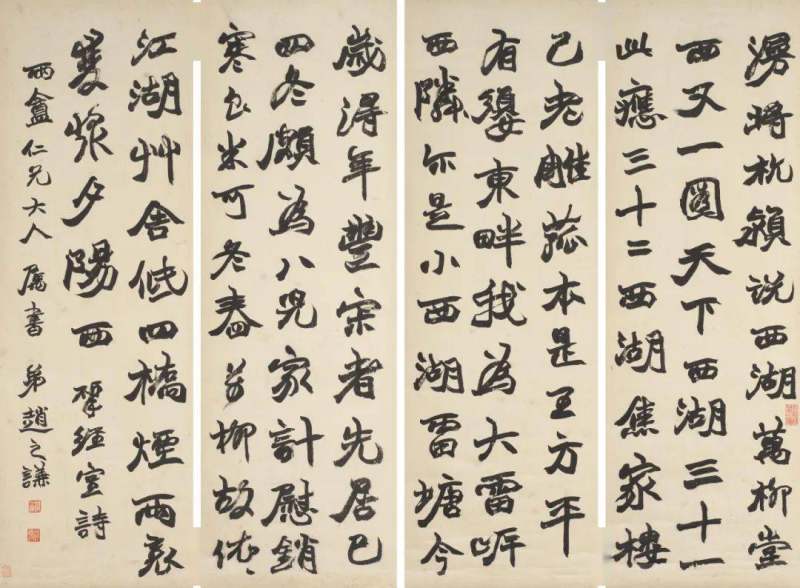 漫將杭潁說西湖萬柳堂
西又一圖天下西湖三十一
此應三十二西湖焦家樓
已老雕菰本是王方平
有東畔我為大雷岸
西隣尒是小西湖雷塘今
歲得年豐宋者先居已
四冬頗為八兒家計慰銷
寒白米可冬舂前柳故依〻
江湖艸舍低四橋煙雨衣
雙槳夕陽西 揅經室詩
丙盦仁兄大人屬書 弟趙之謙